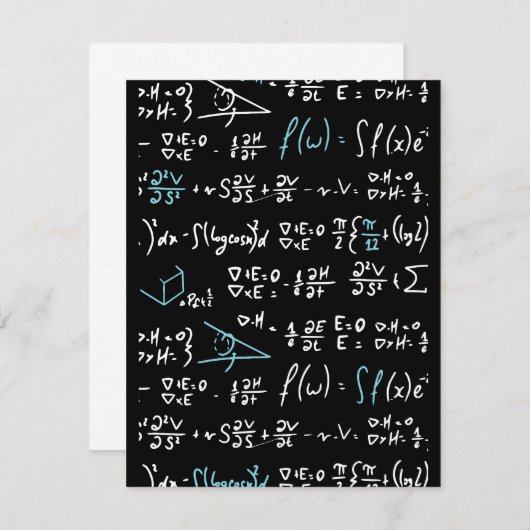 ▷.H = 0 } 1/c ∂E/∂t E = 0 ▷.H = 0
▷×H = } E = ▷×H = 1/c
▽+E=0 - 1/c ∂H/∂t f(ω) = ∫f(x)e⁻
▽×E
∂²V/∂S² + rS ∂V/∂S + ∂V/∂t - r.V = ▽.H = 0
▽×H = 1/c
)² dx - ∫(logcosx)² d ▽+E=0 π/2 { π/12 + (log2)
▽×E =
▽+E=0 - 1/c ∂H/∂t ∂²V/∂S² + ∑
▽×E =
▷.H = 0 } ▷.H = 1/c ∂E/∂t E = 0 ▷.H = 0
▷×H = } E = ▷×H = 1/c
▽+E=0 - 1/c ∂H/∂t f(ω) = ∫f(x)e⁻
▽×E
∂²V/∂S² + rS ∂V/∂S + ∂V/∂t - r.V = ▽.H = 0
▽×H = 1/c
)² dx - ∫(logcosx)² d ▽+E=0 π/2 { π/12 + (log2)
▽×E =